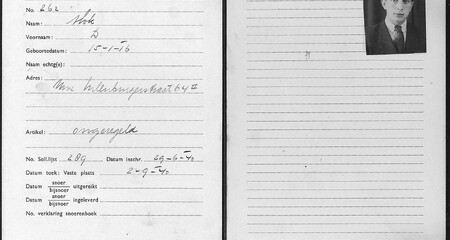 No. 262
Naam:
Voornaam: D
Geboortedatum: 15-1-16
Naam echtg(e):
Adres: 64 II
Artikel: ongeregeld
No. Soll.lijst 289 Datum inschr. 29-6-40
Datum toek: Vaste plaats 2-9-40
Datum snoer/bijsnoer uitgereikt
Datum snoer/bijsnoer ingeleverd
No. verklaring snoerenboek